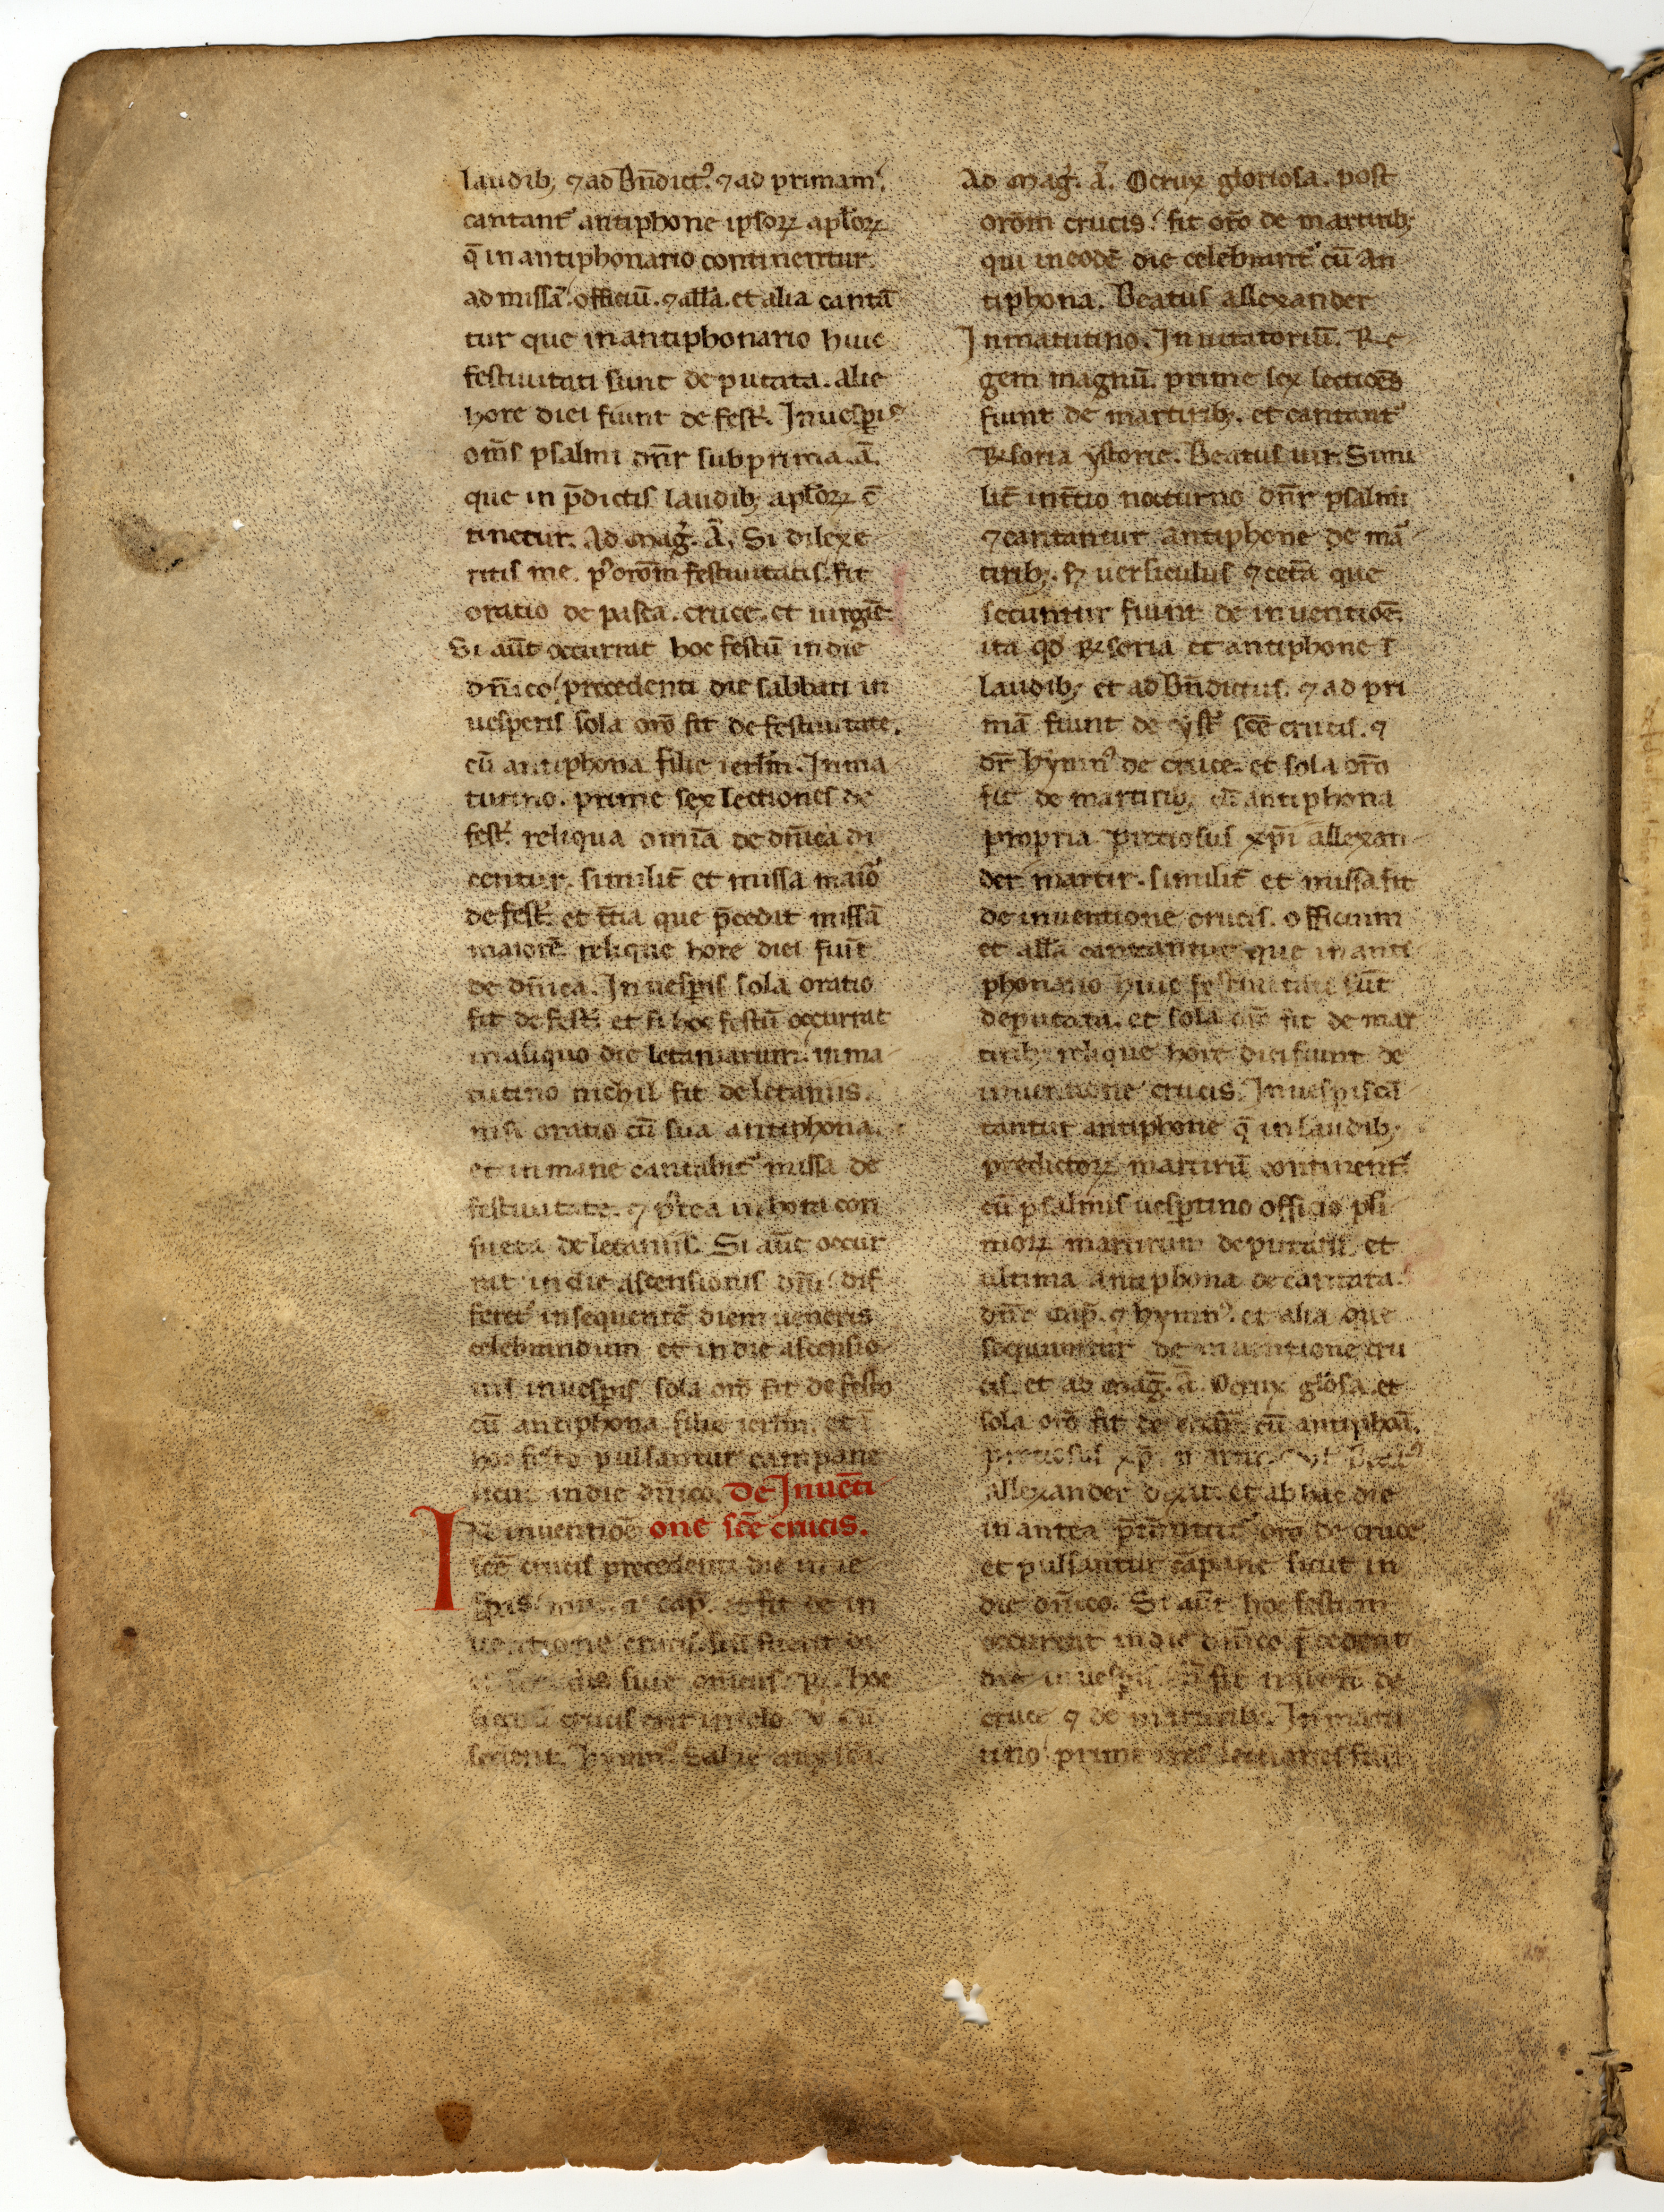 laudib; ⁊ ad Bn̄dict᷒. ⁊ ad primam.
cantant᷑ antiphone ipsoꝝ apl̄oꝝ
q̄ in antiphonario continentur.
ad missā. officiū. ⁊ all̄a. et alia cantā
tur que in antiphonario huic
festiuitati sunt deputata. Alie
hore diei fiunt de fest᷑. In uesꝑis
om̄s psalmi dn̄r sub prima. ā.
que in p̄dictis laudib; apl̄oꝝ c̄
tinetur. Ad mag᷑. Ā. Si dilexe
ritis me. p᷒ orōm festiuitatis. fit
oratio de pasca. cruce. et uirgiē.
Si aūt occurrat hoc festū in die
dn̄ico. precedenti die sabbati in
uesperis sola orō fit de festiuitate.
cū antiphona filie ierl̄m. In ma
tutino. prime sex lectiones de
fest᷑. reliqua omīa de dn̄ica di
centur. similit̄ et missa maio᷑
de fest᷑. et t̄tia que p̄cedit missā
maiorē. relique hore diei fiūt
de dn̄ica. In uesꝑis sola oratio
fit de fest᷑. et si hoc festū occurrat
in aliquo die letaniarum. in ma
tutino nichil fit de letaniis.
nisi oratio cū sua antiphona.
et in mane cantabit᷑ missa de
festiuitate. ⁊ p᷒tea in hora con
sueta de letaniis. Si aūt occur
rat in die ascensionis dn̄i. dif
feret᷑ in sequentē diem ueneris
celebrandum et in die ascensio
nis in uesꝑis sola orō fit de festo
cū antiphona filie ierl̄m. et ī
hoc festo pulsantur campane
sicut in die dn̄ico. De Inuēti
In inuentiōē one sc̄e crucis.
sc̄e crucis precedenti die in ue
sꝑis cap̄. fit de in
uentione crucis.
sine hoc
signū crucis erit in celo
Hymn᷒. Salue crux sc̄a.
Ad mag᷑. ā. O crux gloriosa. post
orōm crucis. fit orō de martirib;
qui in eodē die celebrant᷑ cū an
tiphona. Beatus allexander
In matutino. Inuitatoriū. Re
gem magnū. prime sex lectiōēs
fiunt de martirib;. et cantant᷑
ꝶsoria ystorie. Beatus uir. Simi
lit̄ in t̄tio nocturno dn̄r psalmi
⁊ cantantur antiphone de ma᷑
tirib;. Sꝫ uersiculus ⁊ cet̄a que
secuntur fiunt de inuentiōē.
ita qđ ꝶsoria et antiphone ī
laudib; et ad Bn̄dictus. ⁊ ad pri
mā fiunt de yst᷑ sc̄e crucis. ⁊
dr̄ hymn᷒ de cruce. et sola orō
fit de martirib; cū antiphona
propria preciosus xp̄i allexan
der martir. similit̄ et missa fit
de inuentione crucis. officium
et all̄a cantantur que in anti
phonario huic festiuitati sūt
deputata. et sola orō fit de mar
tirib; relique hore diei fiunt de
inuentione crucis. In uesꝑis cā
tantur antiphone q̄ in laudib;
predictoꝝ martirū continent᷑.
cū psalmis uesꝑtino officio pli
rioꝝ martirum deputatis. et
ultima antiphona decantata.
dn̄e cap̄. ⁊ hymn᷒. et alia que
sequuntur de inuentione cru
cis. et ad mag̅. ā. O crux gl̄osa. et
sola orō fit de cū antiphōa.
preciosus xp̄i martir. Beat᷒
allexander dixit. et ab hac die
in antea p̄mittit᷑ orō de cruce
et pulsantur cāpane sicut in
die dn̄ico. Si aūt hoc festum
occurrat in die dn̄ico. p̄cedenti
die in uesꝑis. fit de
cruce ⁊ de martirib;. In matu
tino. prime tres lectiones fiūt